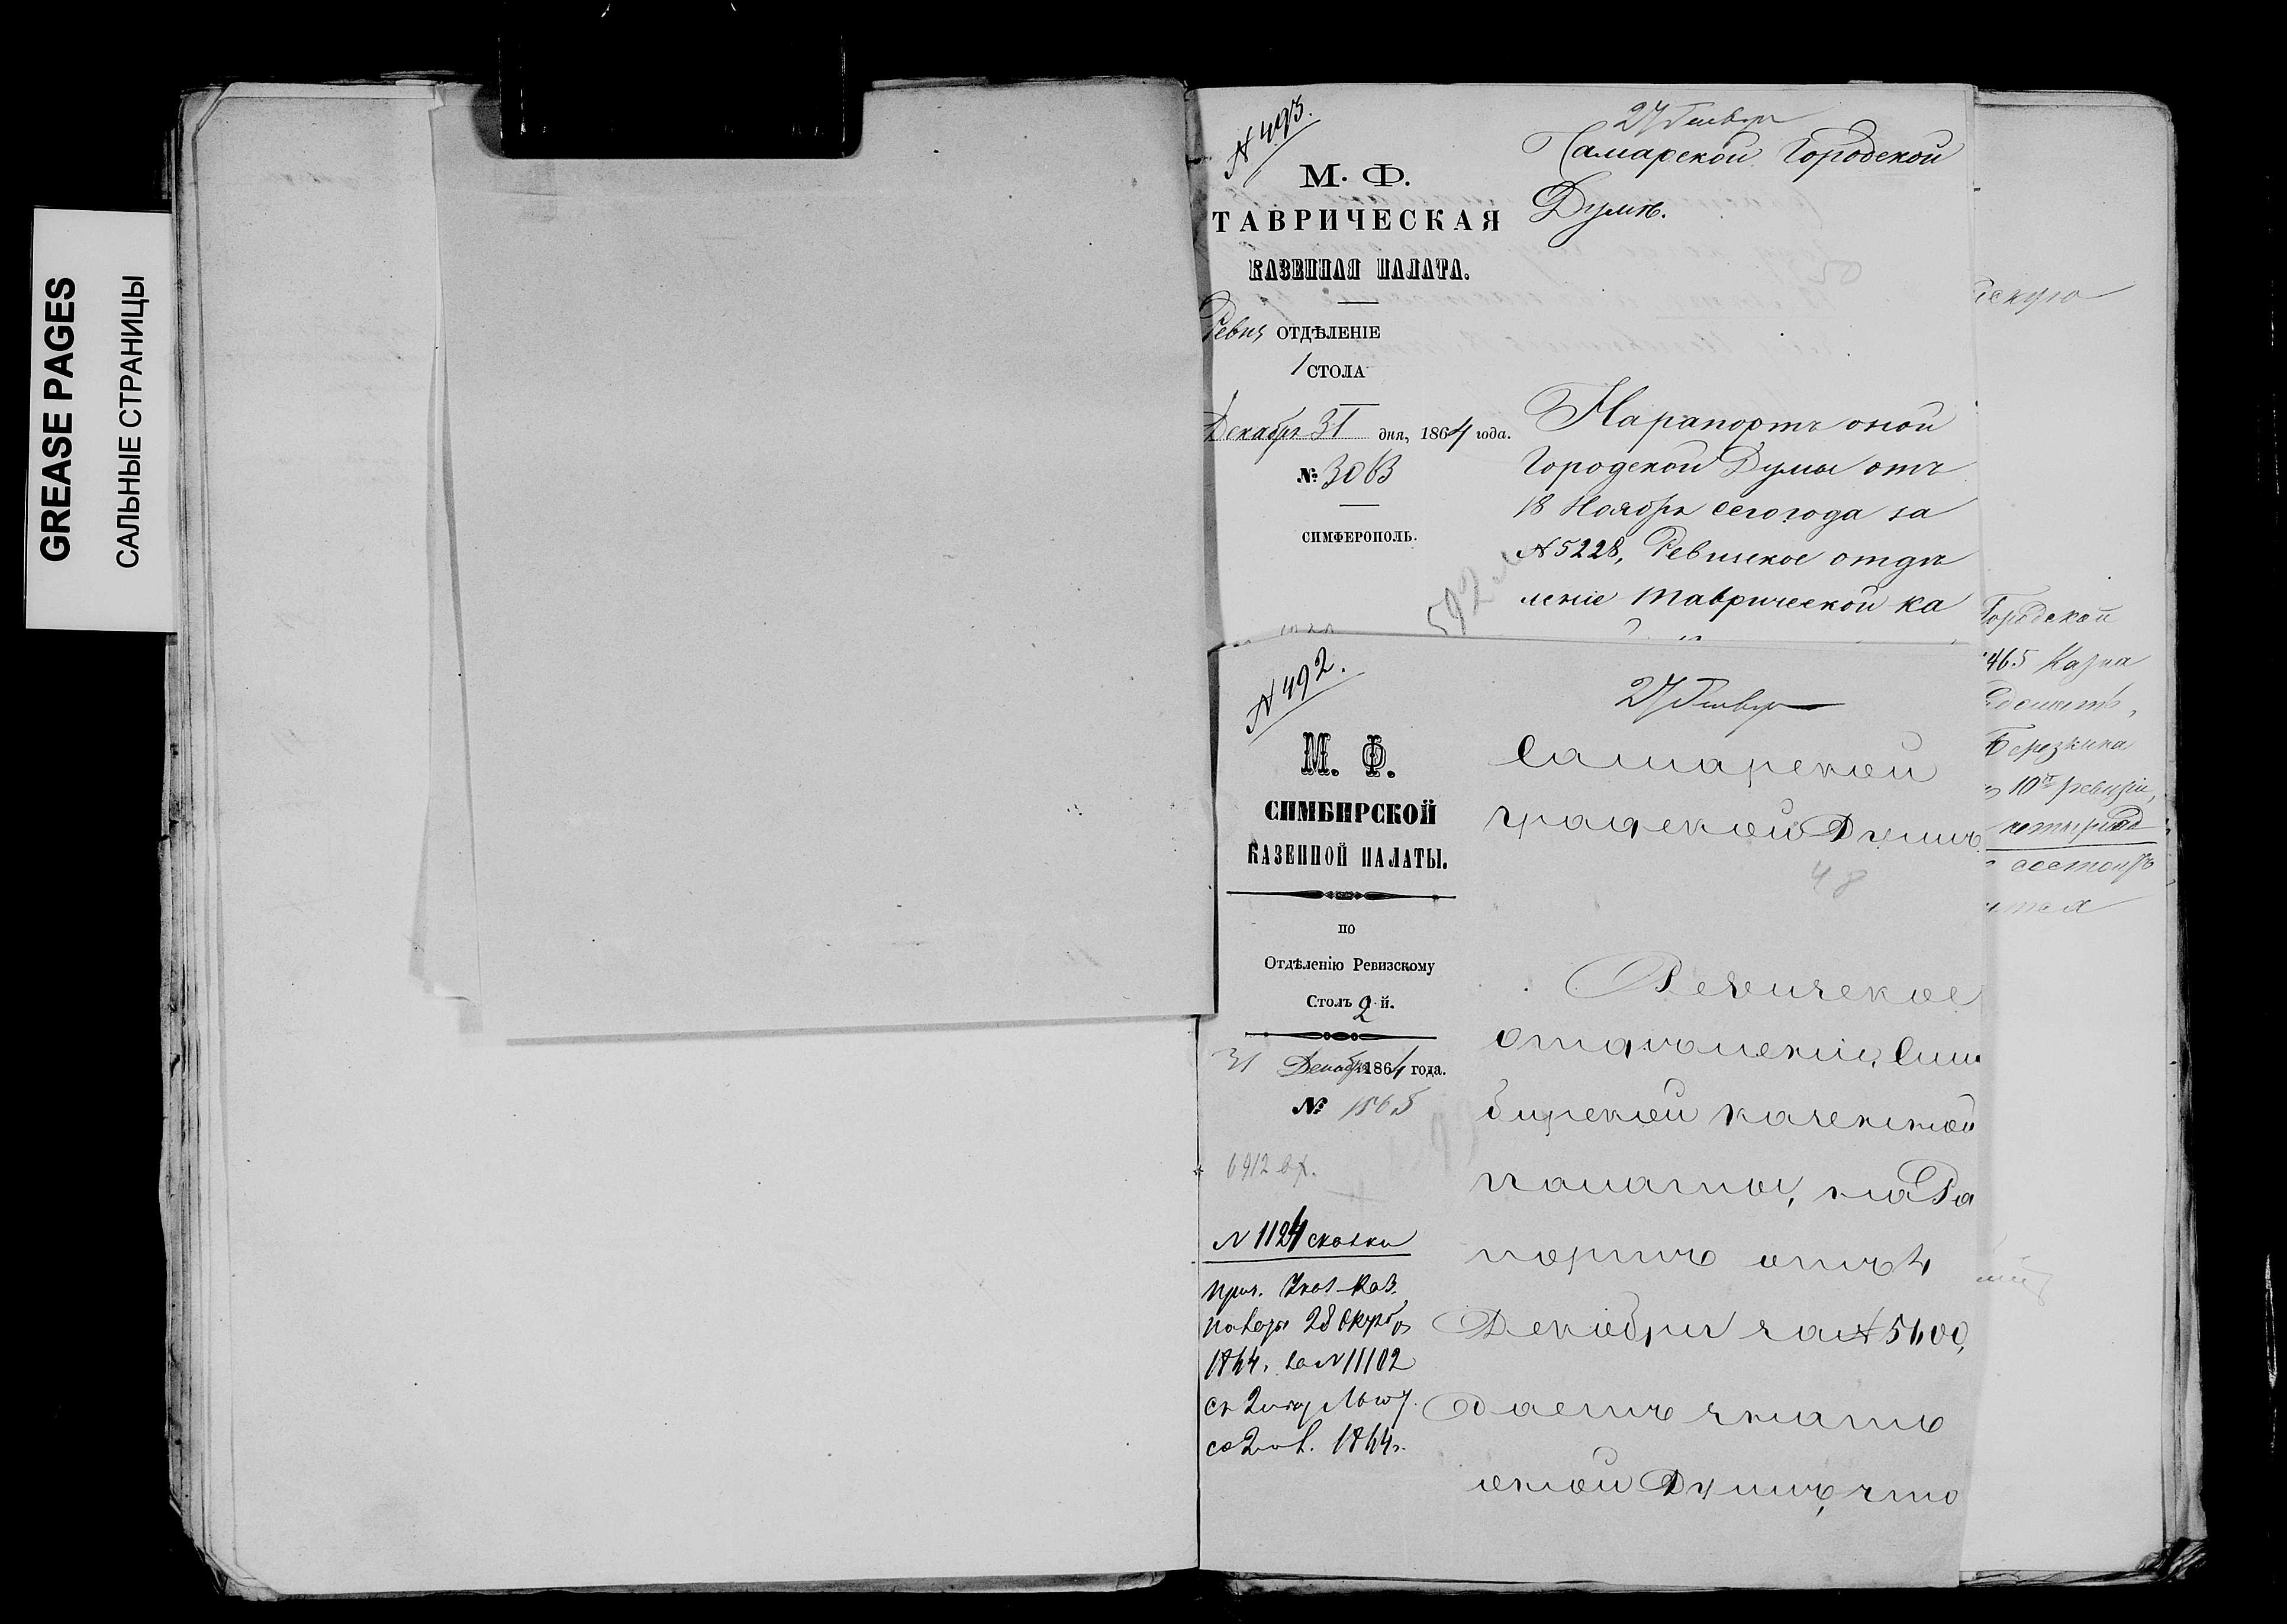 GREASE PAGES
САЛЬНЫЕ СТРАНИЦЫ
N 493.
М. Ф.
ТАВРИЧЕСКАЯ
КАЗЕННАЯ ПАЛАТА.
Ревиз ОТДѢЛЕНІЕ
1 СТОЛА
Декабря 31 дня, 1864 года.
№ 3063
СИМФЕРОПОЛЬ.
27 Генваря
Самарской Городской
Думѣ.
50
На рапортъ оной
Городской Думы отъ
18 Ноября сего года за
N 5228, Ревизское отдѣ
леніе Таврической ка
592
N 492.
М. Ф.
СИМБИРСКОЙ
КАЗЕННОЙ ПАЛАТЫ.
по
Отдѣленію Ревизскому
Столъ 2 й.
31 Декабря 1864 года.
№ 1565
6912 вх.
N 1124 сказки
1864. за N 11102
27 Генваря
Самарской
градской Думѣ.
48
Ревизское
отдѣленіе Сим
бирской казенной
палаты, на Ра
портъ отъ 4
Декабря за N 5400,
даетъ знать
оной Думѣ, что
Городской
465 Казна
Березкина
10й ревизіи,